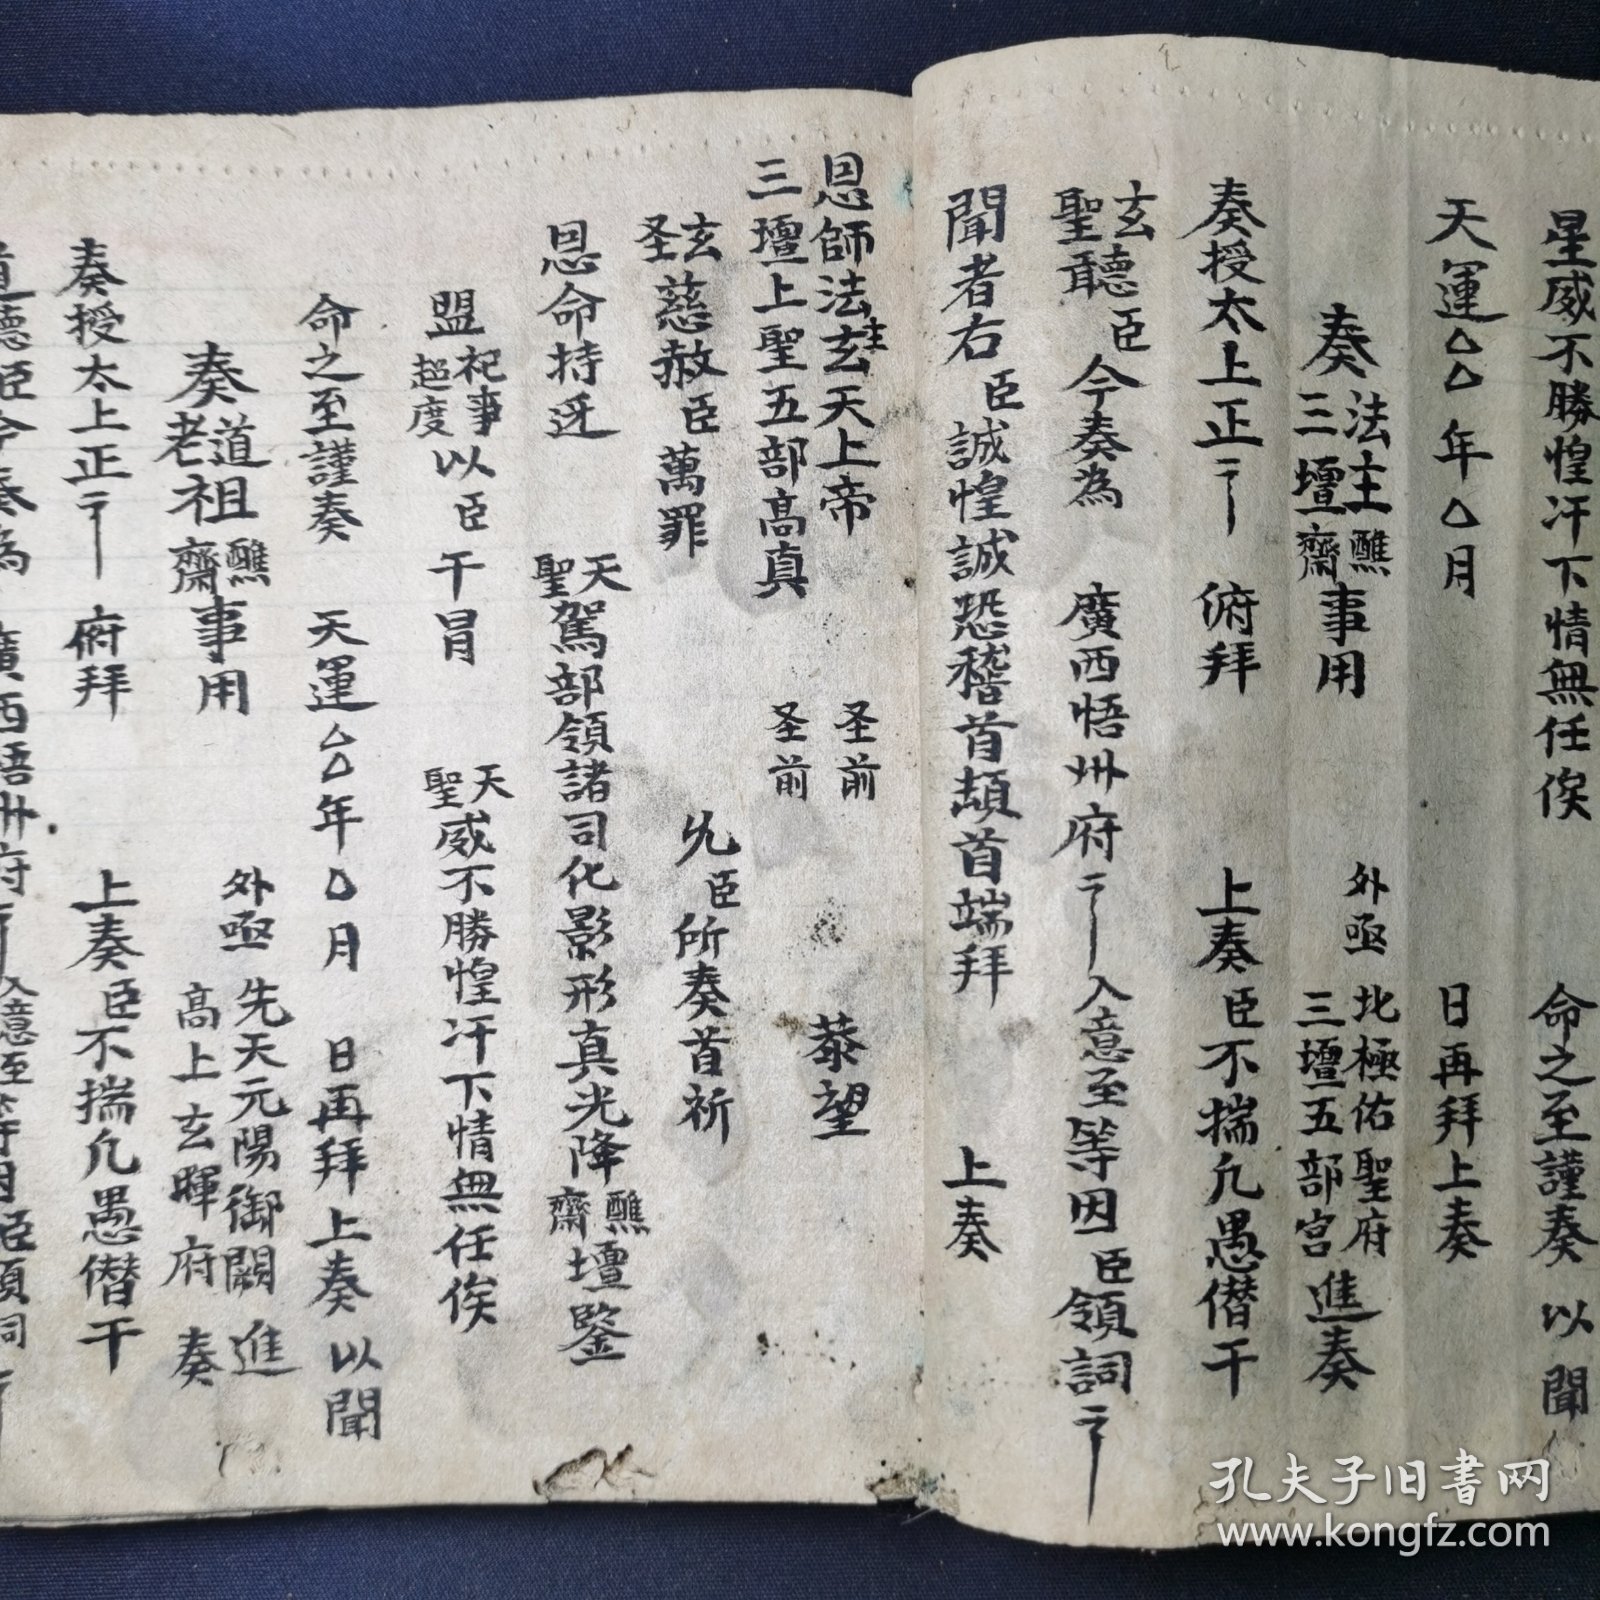 星威不勝惶汗下情無任俟 命之至謹奏 以聞
天運△△年△月 日再拜上奏
奏 法主 三壇 醮 齋 事用 外亟 北極佑聖府 三壇五部宮 進奏
奏授太上正 俯拜 上奏臣不揣凢愚僣干
玄 聖 聽 聴 臣 今奏為 廣西悟州府 入意至等因 臣領詞
聞者右 臣誠惶誠恐稽首頡首端拜 上奏
恩師法主玄天上帝 圣前 恭望
三壇上聖五部髙真 圣前
玄 圣 慈赦 臣萬罪 臣所奏首祈
恩命持 天 聖 駕部領諸司化影形真光降 醮 齋 壇鑒
盟 祀事 超度 以臣 干冒 天 聖 威不勝惶汗下情無任俟
命之至謹奏 天運△△年△月 日再拜上奏 以聞
奏 道 老 祖 醮 齋 事用 外亟 先天元陽御闕 髙上玄暉府 進奏
奏授太上正 俯拜 上奏臣不揣凢愚僣干
道德 臣今奏為 廣西悟州府 入意至等因臣領詞
孔夫子旧书网
www.kongfz.com